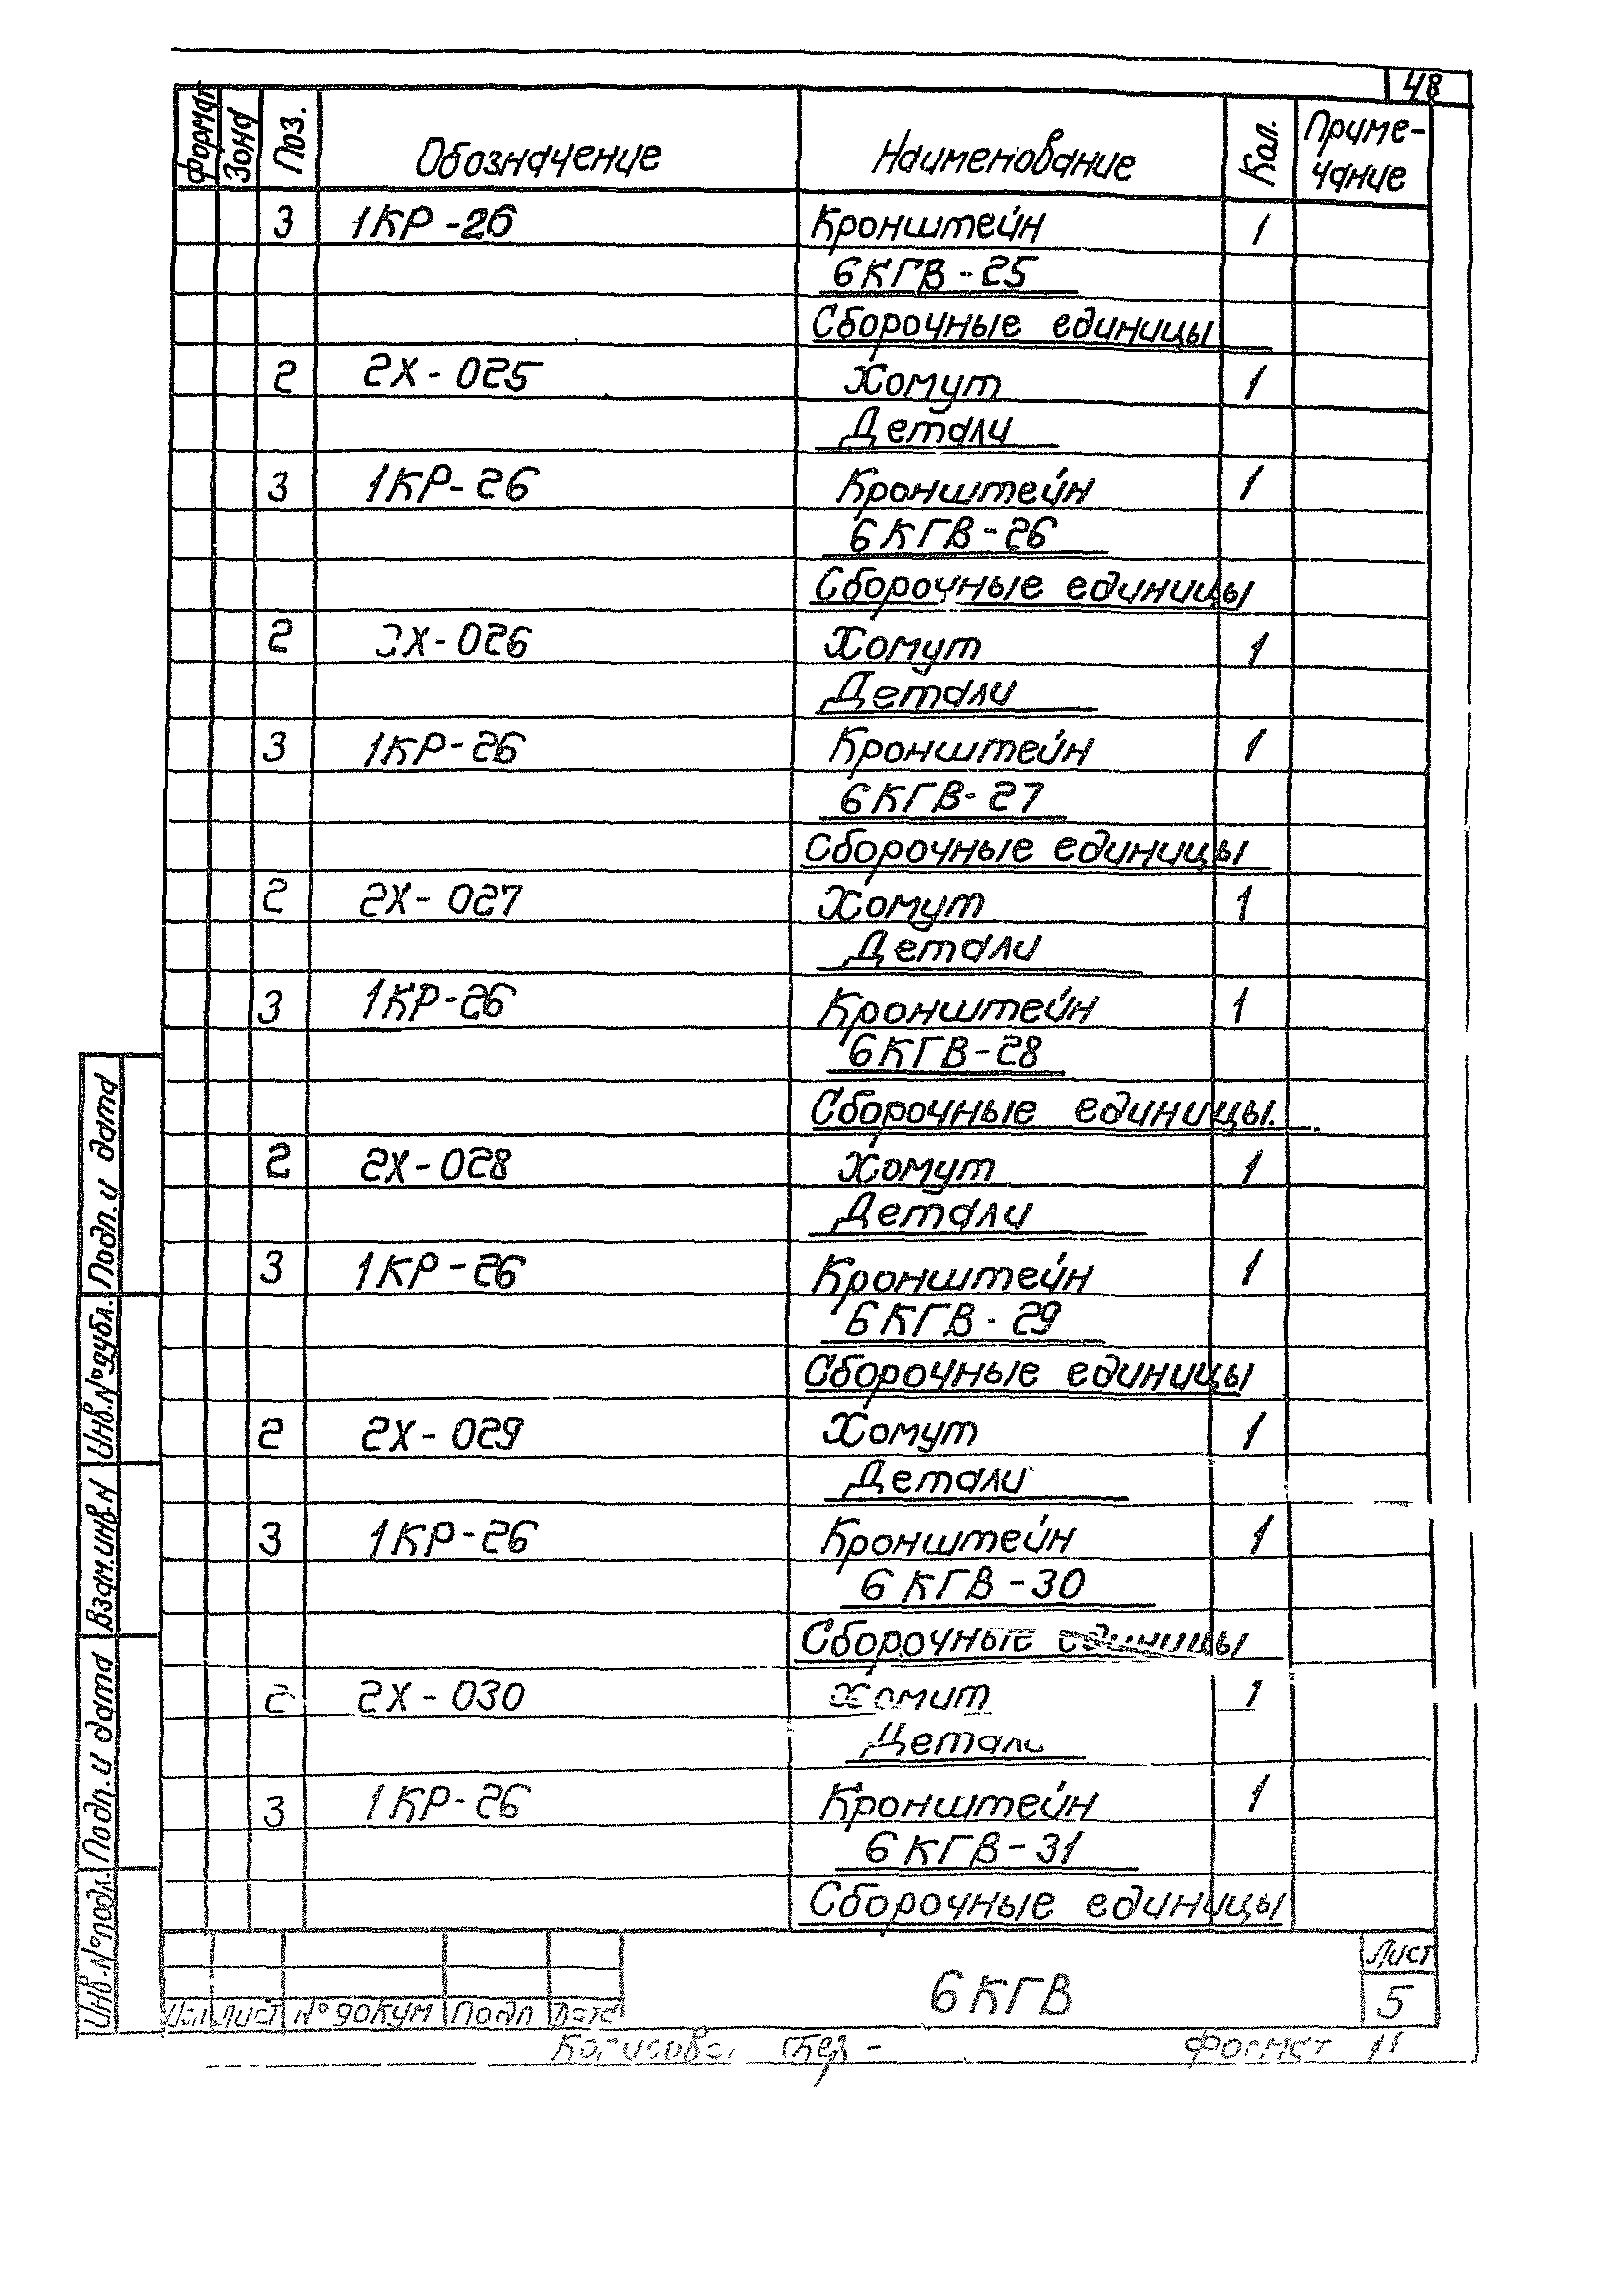 48
Формат Зона Поз. Обозначение Наименование Кол. Приме-
чание
3 1КР-26 Кронштейн 1
6КГВ-25
Сборочные единицы
2 2Х-025 Хомут 1
Детали
3 1КР-26 Кронштейн 1
6КГВ-26
Сборочные единицы
2 2Х-026 Хомут 1
Детали
3 1КР-26 Кронштейн 1
6КГВ-27
Сборочные единицы
2 2Х-027 Хомут 1
Детали
3 1КР-26 Кронштейн 1
6КГВ-28
Сборочные единицы.
2 2Х-028 Хомут 1
Детали
3 1КР-26 Кронштейн 1
6КГВ-29
Сборочные единицы
2 2Х-029 Хомут 1
Детали
3 1КР-26 Кронштейн 1
6КГВ-30
Сборочные единицы
2 2Х-030 Хомут 1
Детали
3 1КР-26 Кронштейн 1
6КГВ-31
Сборочные единицы
Подп. и дата
Инв.№дубл.
Взам.инв.N
Подп. и дата
Инв.№подл.
Изм Лист №докум Подп Дата
6КГВ
Лист
5
Копировал Формат 11